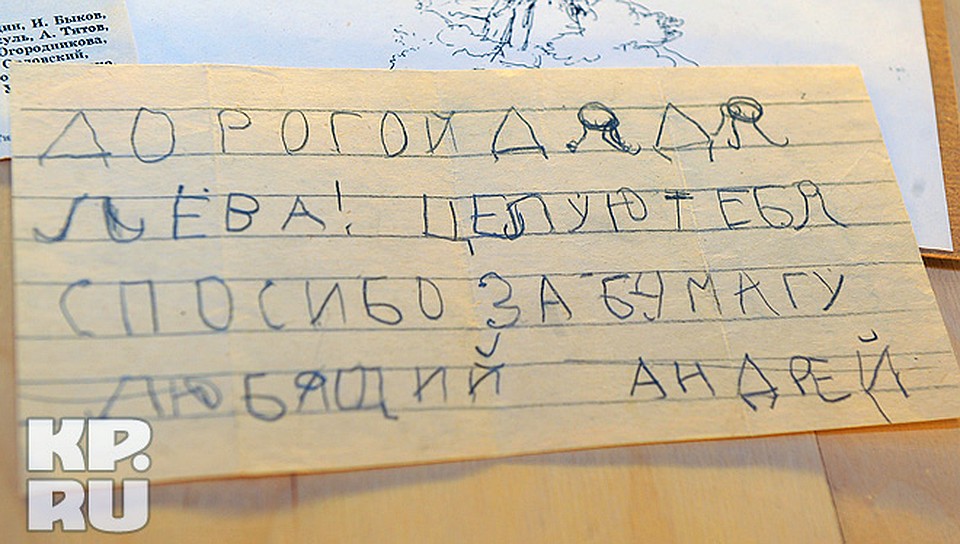 дин, И. Быков,
куль, А. Титов,
Огородникова,
ДОРОГОЙ ДЯДЯ
ЛЁВА! ЦЕЛУЮ ТЕБЯ
СПОСИБО ЗА БУМАГУ
ЛЮБЯЩИЙ АНДРЕЙ
KP.
RU